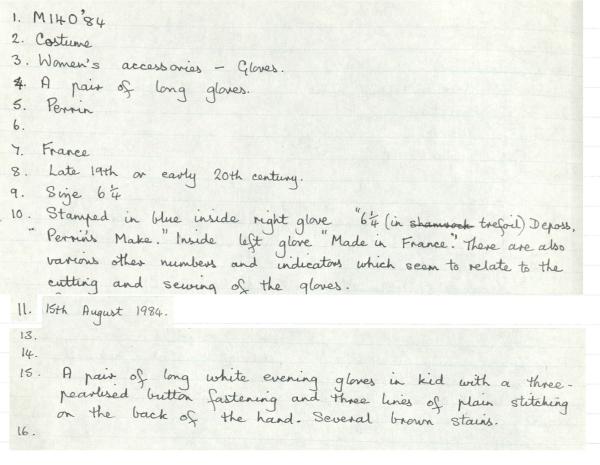 1. M140'84
2. Costume
3. Women's accessories – Gloves.
4. A pair of long gloves.
5. Perrin
6.
7. France
8. Late 19th or early 20th century.
9. Size 6¼
10. Stamped in blue inside right glove "6¼ (in shamrock trefoil) Deposs,
"Perrin's Make." Inside left glove "Made in France." There are also
various other numbers and indicators which seem to relate to the
cutting and sewing of the gloves.
11. 15th August 1984.
13.
14.
15. A pair of long white evening gloves in kid with a three-
pearlised button fastening and three lines of plain stitching
on the back of the hand. Several brown stains.
16.